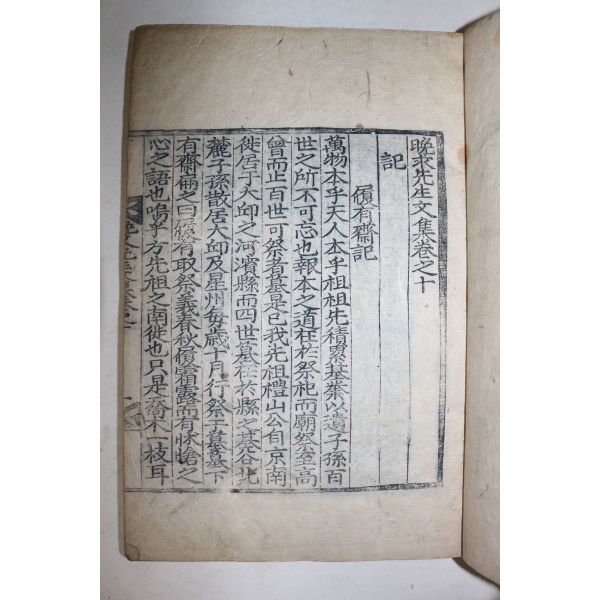 晩求先生文集卷之十
記
優有齋記
萬物本乎天人本乎祖祖先積累基業以遺子孫百
世之所不可忘也報本之道在於祭祀而廟祭至高
曾而止百世可祭者墓是已我先祖禮山公自京南
徙居于大邱之河濱縣而四世墓在於縣之基谷北
麓子孫散居大邱及星州每歲十月行祭于墓墓下
有齋扁之曰優有取祭義春秋霜露而有怵愴之
心之語也嗚乎方先祖之南徙也只是喬木一枝耳